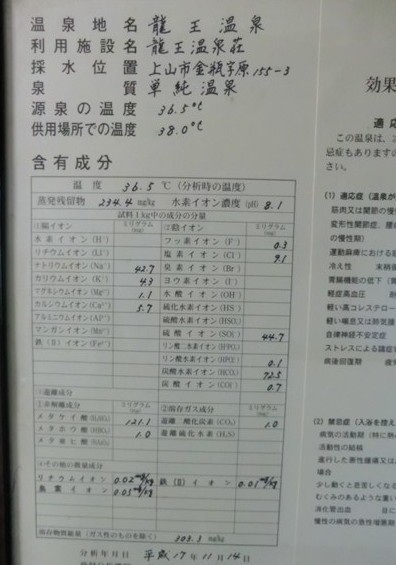 温泉地名 龍王温泉
利用施設名 龍王温泉荘
採水位置 上山市金瓶字原155-3
泉質 単純温泉
源泉の温度 36.5℃
供用場所での温度 38.0℃
含有成分
温度 36.5℃ (分析時の温度)
蒸発残留物 234.4 mg/kg 水素イオン濃度(pH) 8.1
試料1kg中の成分の分量
(1)陽イオン ミリグラム(mg) (2)陰イオン ミリグラム(mg)
水素イオン(H⁺) フッ素イオン(F⁻) 0.3
リチウムイオン(Li⁺) 塩素イオン(Cl⁻) 9.1
ナトリウムイオン(Na⁺) 42.7 臭素イオン(Br⁻)
カリウムイオン(K⁺) 4.3 ヨウ素イオン(I⁻)
マグネシウムイオン(Mg²⁺) 1.1 水酸イオン(OH⁻)
カルシウムイオン(Ca²⁺) 5.7 硫化水素イオン(HS⁻)
アルミニウムイオン(Al³⁺) 硫酸水素イオン(HSO₄⁻)
マンガンイオン(Mn²⁺) 硫酸イオン(SO₄²⁻) 44.7
鉄(II)イオン(Fe²⁺) リン酸二水素イオン(H₂PO₄⁻)
リン酸水素イオン(HPO₄²⁻) 0.1
炭酸水素イオン(HCO₃⁻) 72.5
炭酸イオン(CO₃²⁻) 0.7
(3)遊離成分
①非解離成分 ミリグラム(mg) ②溶存ガス成分 ミリグラム(mg)
メタケイ酸(H₂SiO₃) 121.1 遊離二酸化炭素(CO₂) 1.0
メタホウ酸(HBO₂) 1.0 遊離硫化水素(H₂S)
メタ亜ヒ酸(HAsO₂)
(4)その他の微量成分
リチウムイオン 0.02mg/kg 鉄(II)イオン 0.01mg/kg
臭素イオン 0.05mg/kg
溶存物質総量(ガス性のものを除く) 303.3 mg
分析年月日 平成17年11月14日
効果
適応
この温泉は、
忌症もあります
さい。
(1) 適応症(温泉が
筋肉又は関節の慢性
変形性関節症、腰
の慢性期)
運動麻痺における
冷え性 末梢
胃腸機能の低下(胃
軽症高血圧
軽い高コレステロー
軽い喘息又は肺気腫
自律神経不安定症
ストレスによる諸症
病後回復期 疲
(2) 禁忌症(入浴を控え
病気の活動期(特に熱
活動性の結核
進行した悪性腫瘍又は
場合
少し動くと息苦しくなる
むくみのあるような重い
消化管出血 目に
慢性の病気の急性増悪期